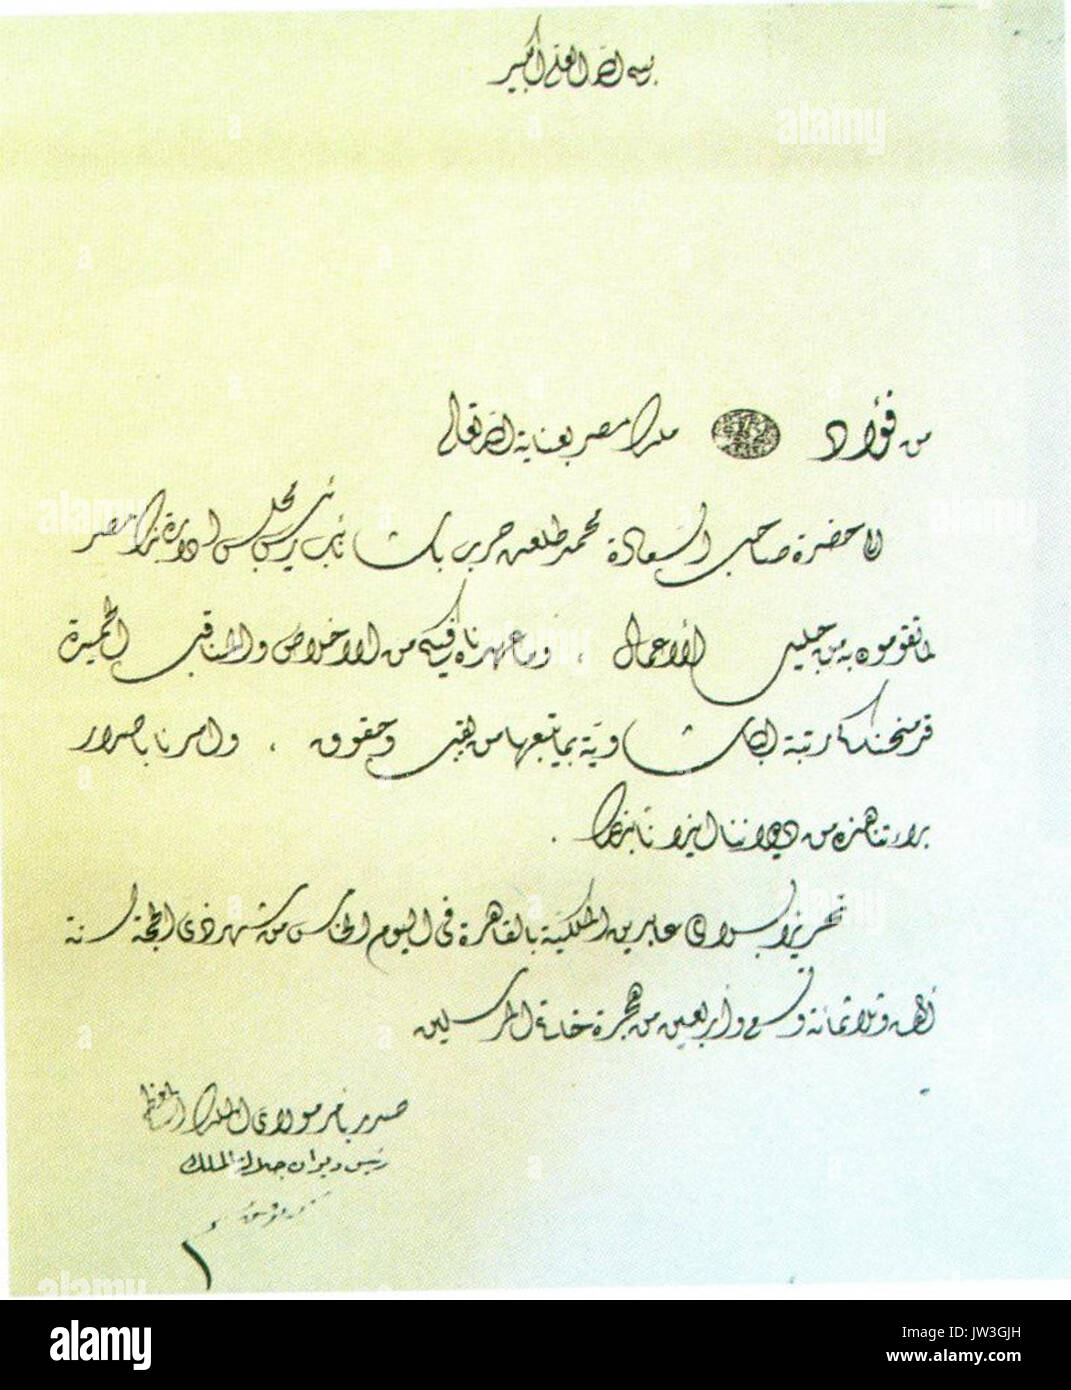 بسم الله العلى الكبير
من فؤاد ملك مصر بعناية الله تعالى
إلى حضرة صاحب السعادة محمد طلعت حرب باشا نائب رئيس مجلس إدارة بنك مصر
لما تقومون به من جليل الأعمال ، وما عهدناه فيكم من الاخلاص والمناقب الحميدة
قد منحناكم رتبة الباشاوية بما يتبعها من لقب وحقوق ، وأمرنا باصدار
براءتنا هذه من ديواننا ايذانا بذلك .
تحريرا بسراى عابدين الملكية بالقاهرة فى اليوم الخامس من شهر ذى الحجة لسنة
ألف وثلاثمائة وتسع وأربعين من هجرة خاتم المرسلين
صدر بأمر مولاى الملك المعظم
رئيس ديوان جلالة الملك
alamy
Image ID: JW3GJH
www.alamy.com